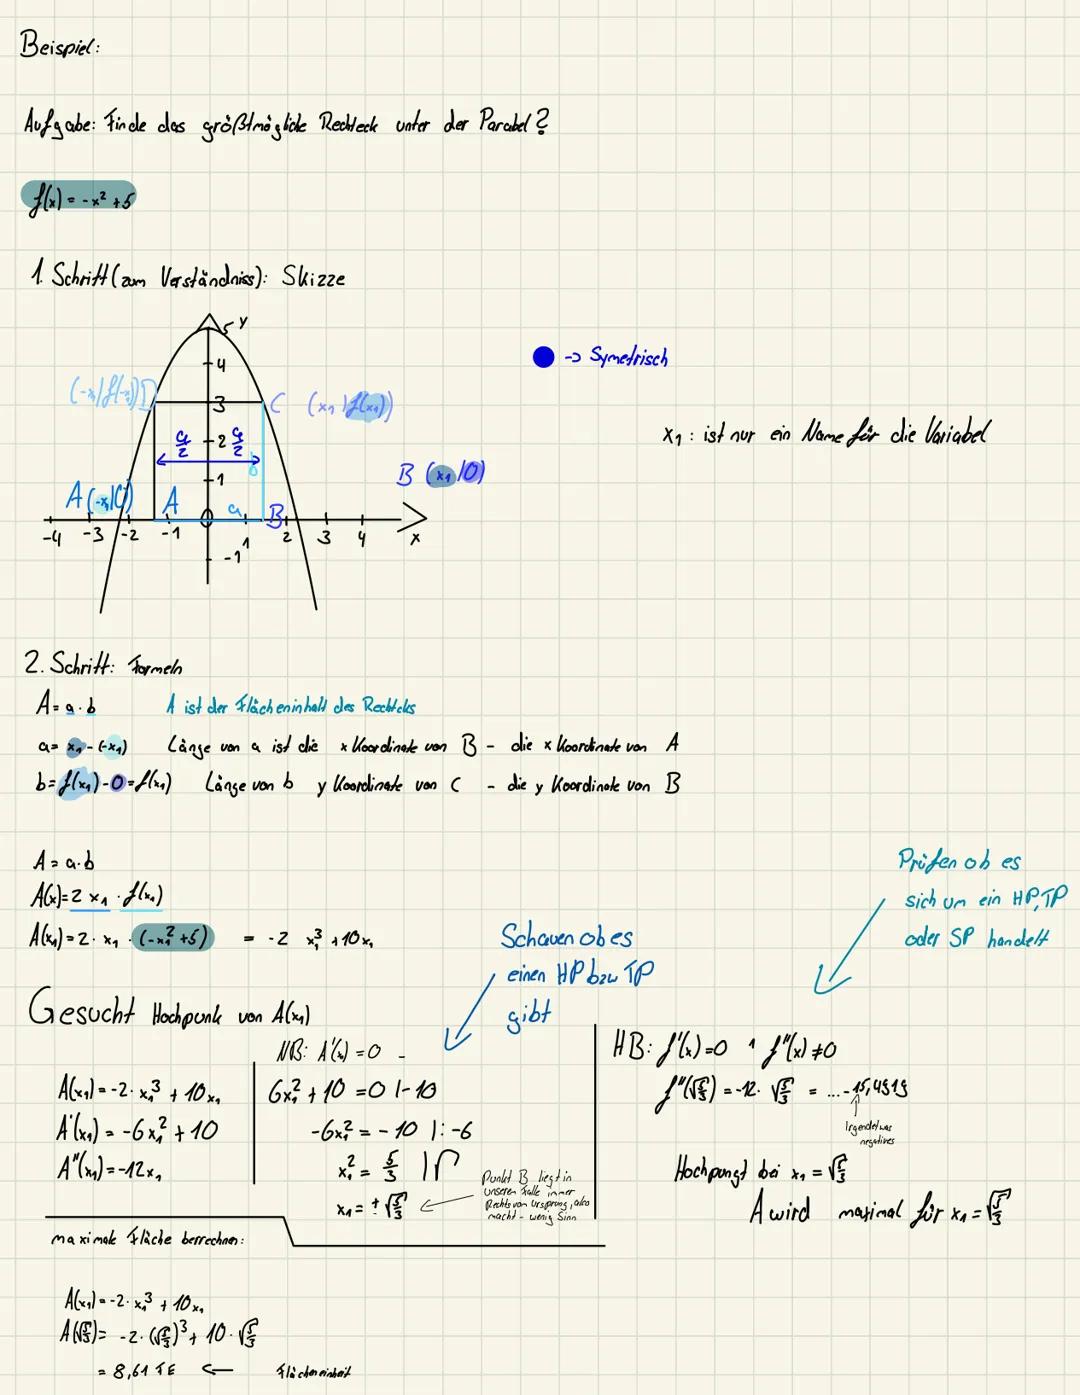 Beispiel:
Aufgabe: Finde das größtmögliche Rechteck unter der Parabel?
f(x) = -x² +5
1. Schritt (zum Verständniss): Skizze
y
5
4
(-x₁|f(-x₁)) D
3
C (x₁|f(x₁))
a/2 2 a/2
b
1
A (-x₁|0) A
a
B
B (x₁|0)
-4 -3 -2 -1 0 1 2 3 4 x
-1
-> Symetrisch
x₁: ist nur ein Name für die Variabel
2. Schritt: Formeln
A = a · b A ist der Flächeninhalt des Rechtcks
a = x₁ - (-x₁) Länge von a ist die x Koordinate von B - die x Koordinate von A
b = f(x₁) - 0 = f(x₁) Länge von b y Koordinate von C - die y Koordinate von B
A = a · b
A(x) = 2 x₁ · f(x₁)
A(x₁) = 2 · x₁ · (-x₁² +5) = -2 x₁³ + 10x₁
Schauen ob es
einen HP bzw TP
gibt
Prüfen ob es
sich um ein HP, TP
oder SP handelt
Gesucht Hochpunk von A(x₁)
A(x₁) = -2 · x₁³ + 10x₁
A'(x₁) = -6x₁² + 10
A''(x₁) = -12x₁
NB: A'(x) = 0 -
6x₁² + 10 = 0 |-10
-6x₁² = -10 |: -6
x₁² = 5/3 |√
x₁ = ±√5/3
Punkt B liegt in
unseren Falle immer
Rechts von Ursprung, also
macht - wenig Sinn
HB: f'(x) = 0 ∧ f''(x) ≠ 0
f''(√5/3) = -12 · √5/3 = ... -15,4919
Irgendetwas
negatives
Hochpungt bei x₁ = √5/3
A wird maximal für x₁ = √5/3
maximale Fläche berrechnen:
A(x₁) = -2 · x₁³ + 10x₁
A(√5/3) = -2 · (√5/3)³ + 10 · √5/3
= 8,61 FE <— Flächeneinheit